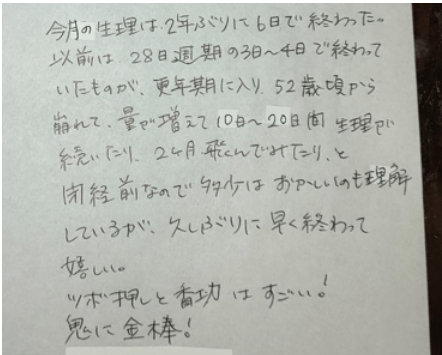 今月の生理は、2年ぶりに6日で終わった。
以前は、28日週期の3日〜4日で終わって
いたものが、更年期に入り、52歳頃から
崩れて、量が増えて10日〜20日間生理が
続いたり、2ヶ月飛んでみたり、と
閉経前なので多少はおかしいのも理解
しているが、久しぶりに早く終わって
嬉しい。
ツボ押しと香功はすごい!
鬼に金棒!